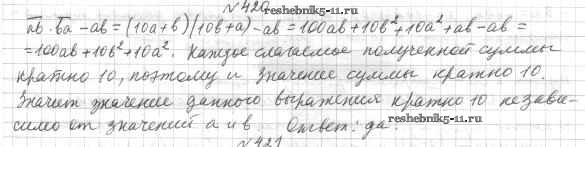 №420
ab·ba - ab = (10a+b)(10b+a) - ab = 100ab+10b²+10a²+ab-ab =
=100ab+10b²+10a². Каждое слагаемое полученной суммы
кратно 10, поэтому и значение суммы кратно 10.
Значит значение данного выражения кратно 10 незави-
симо от значений а и в Ответ: да.
reshebnik5-11.ru
reshebnik5-11.ru
№421